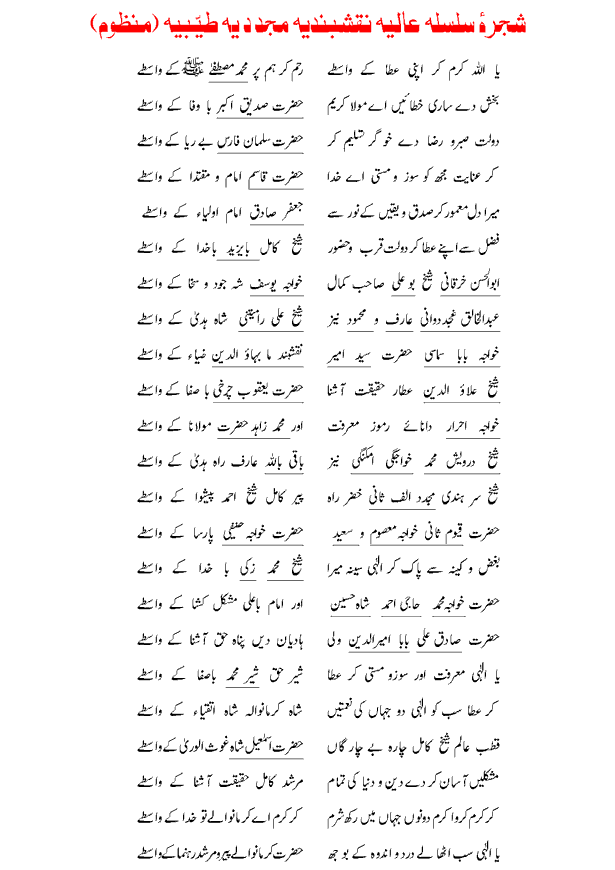 شجرۂ سلسلہ عالیہ نقشبندیہ مجددیہ طیّبیہ (منظوم)
یا اللہ کرم کر اپنی عطا کے واسطے رحم کر ہم پر محمد مصطفےٰ ﷺ کے واسطے
بخش دے ساری خطائیں اے مولا کریم حضرت صدیق اکبر با وفا کے واسطے
دولت صبرو رضا دے خو گر تسلیم کر حضرت سلمان فارس بے ریا کے واسطے
کر عنایت مجھ کو سوز و مستی اے خدا حضرت قاسم امام و مقتدا کے واسطے
میرا دل معمور کر صدق و یقیں کے نور سے جعفر صادق امام اولیاء کے واسطے
فضل سے اپنے عطا کر دولت قرب وحضور شیخ کامل بایزید باخدا کے واسطے
ابوالحسن خرقانی شیخ بو علی صاحب کمال خواجہ یوسف شہ جود و سخا کے واسطے
عبدالخالق غجدوانی عارف و محمود نیز شیخ علی رامیتنی شاہ ہدیٰ کے واسطے
خواجہ بابا سماسی حضرت سید امیر نقشبند ما بہاؤ الدین ضیاء کے واسطے
شیخ علاؤ الدین عطار حقیقت آشنا حضرت یعقوب چرخی با صفا کے واسطے
خواجہ احرار دانائے رموز معرفت اور محمد زاہد حضرت مولانا کے واسطے
شیخ درویش محمد خواجگی امکنگی نیز باقی باللہ عارف راہ ہدیٰ کے واسطے
شیخ سر ہندی مجدد الف ثانی خضر راہ پیر کامل شیخ احمد پیشوا کے واسطے
حضرت قیوم ثانی خواجہ معصوم و سعید حضرت خواجہ حنیفی پارسا کے واسطے
بغض و کینہ سے پاک کر الٰہی سینہ میرا شیخ محمد زکی با خدا کے واسطے
حضرت خواجہ محمد حاجی احمد شاہ حسین اور امام باعلی مشکل کشا کے واسطے
حضرت صادق علی بابا امیرالدین ولی ہادیان دیں پناہ حق آشنا کے واسطے
یا الٰہی معرفت اور سوزو مستی کر عطا شیر حق شیر محمد باصفا کے واسطے
کر عطا سب کو الٰہی دو جہاں کی نعمتیں شاہ کرمانوالہ شاہ اتقیاء کے واسطے
قطب عالم شیخ کامل چارہ بے چار گاں حضرت اسمٰعیل شاہ غوث الوریٰ کے واسطے
مشکلیں آسان کر دے دین و دنیا کی تمام مرشد کامل حقیقت آشنا کے واسطے
کر کرم کروا کرم دونوں جہاں میں رکھ شرم کر کرم اے کرمانوالے تو خدا کے واسطے
یا الٰہی سب اٹھا لے درد و اندوہ کے بوجھ حضرت کرمانوالے پیرو مرشد رہنما کے واسطے